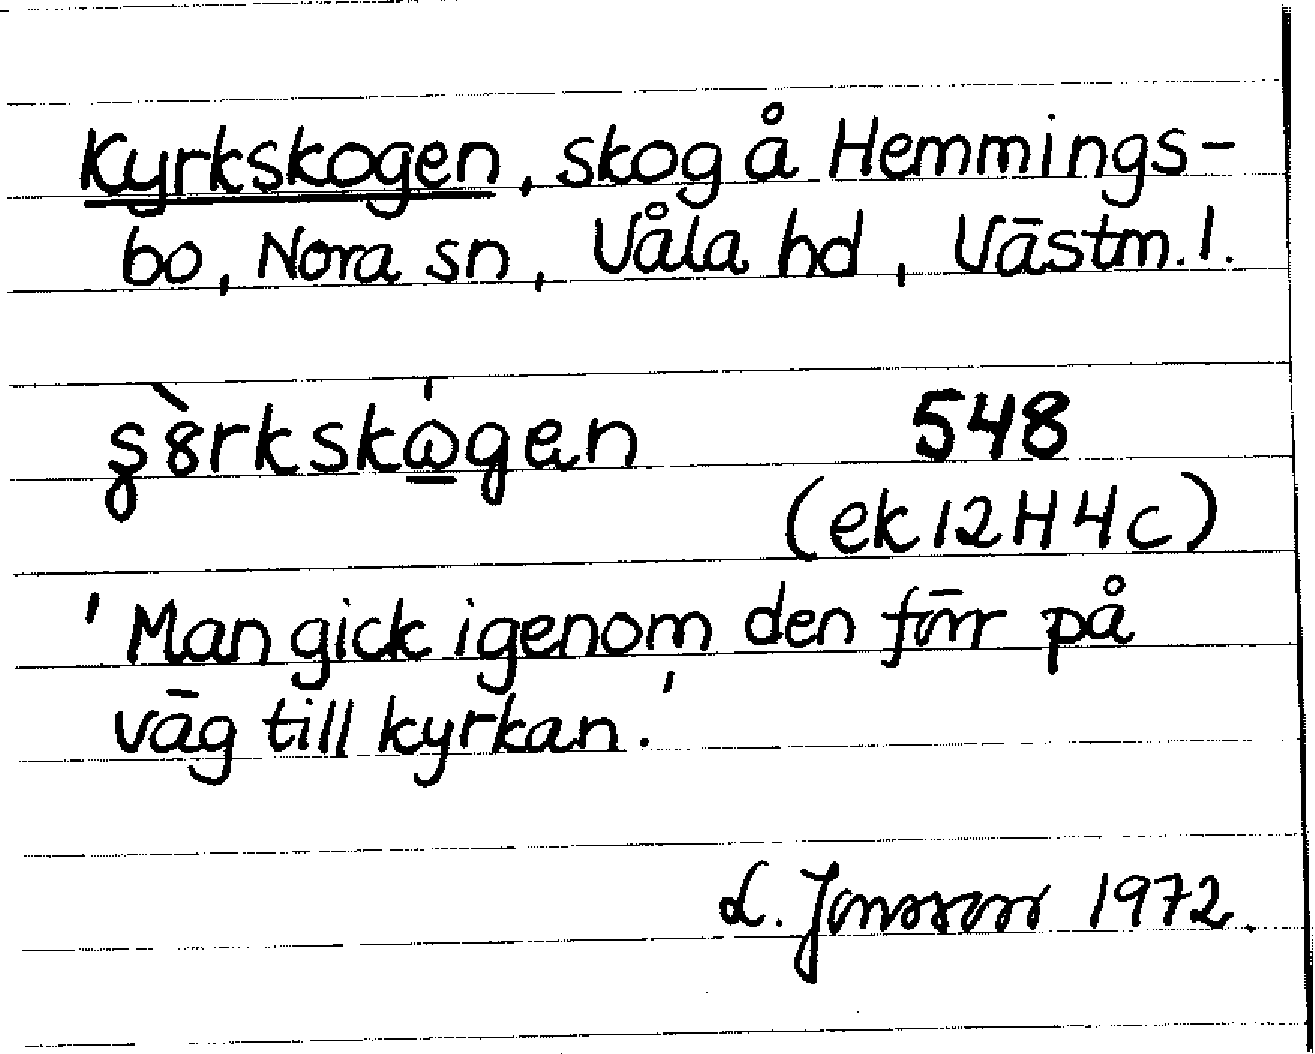 Kyrkskogen, skog å Hemmings-
bo, Nora sn, Våla hd, Västm. l.
548
(ek 12H4c)
'Man gick igenom den förr på
väg till kyrkan.'
L. Jonsson 1972.